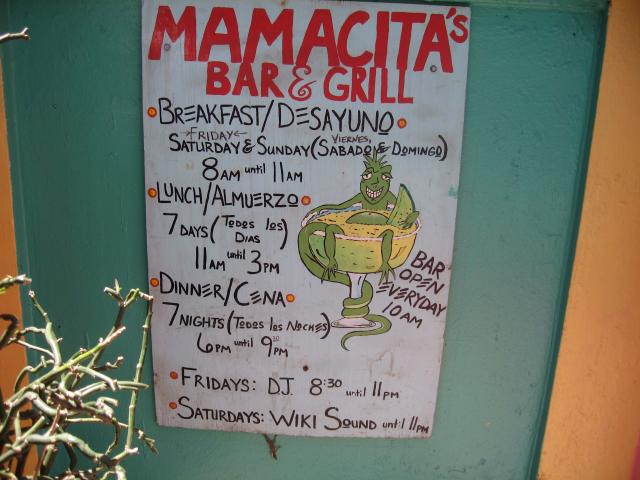 MAMACITA's
BAR & GRILL
BREAKFAST/DESAYUNO
FRIDAY VIERNES,
SATURDAY & SUNDAY (SABADO & DOMINGO)
8AM until 11AM
LUNCH/ALMUERZO
7 DAYS (TODOS los DIAS)
11AM until 3PM
DINNER/CENA
7 NIGHTS (TODOS los NOCHES)
6PM until 9 PM
BAR
OPEN
EVERYDAY
10AM
• FRIDAYS: D.J. 8:30 until 11PM
• SATURDAYS: WIKI SOUND until 11PM